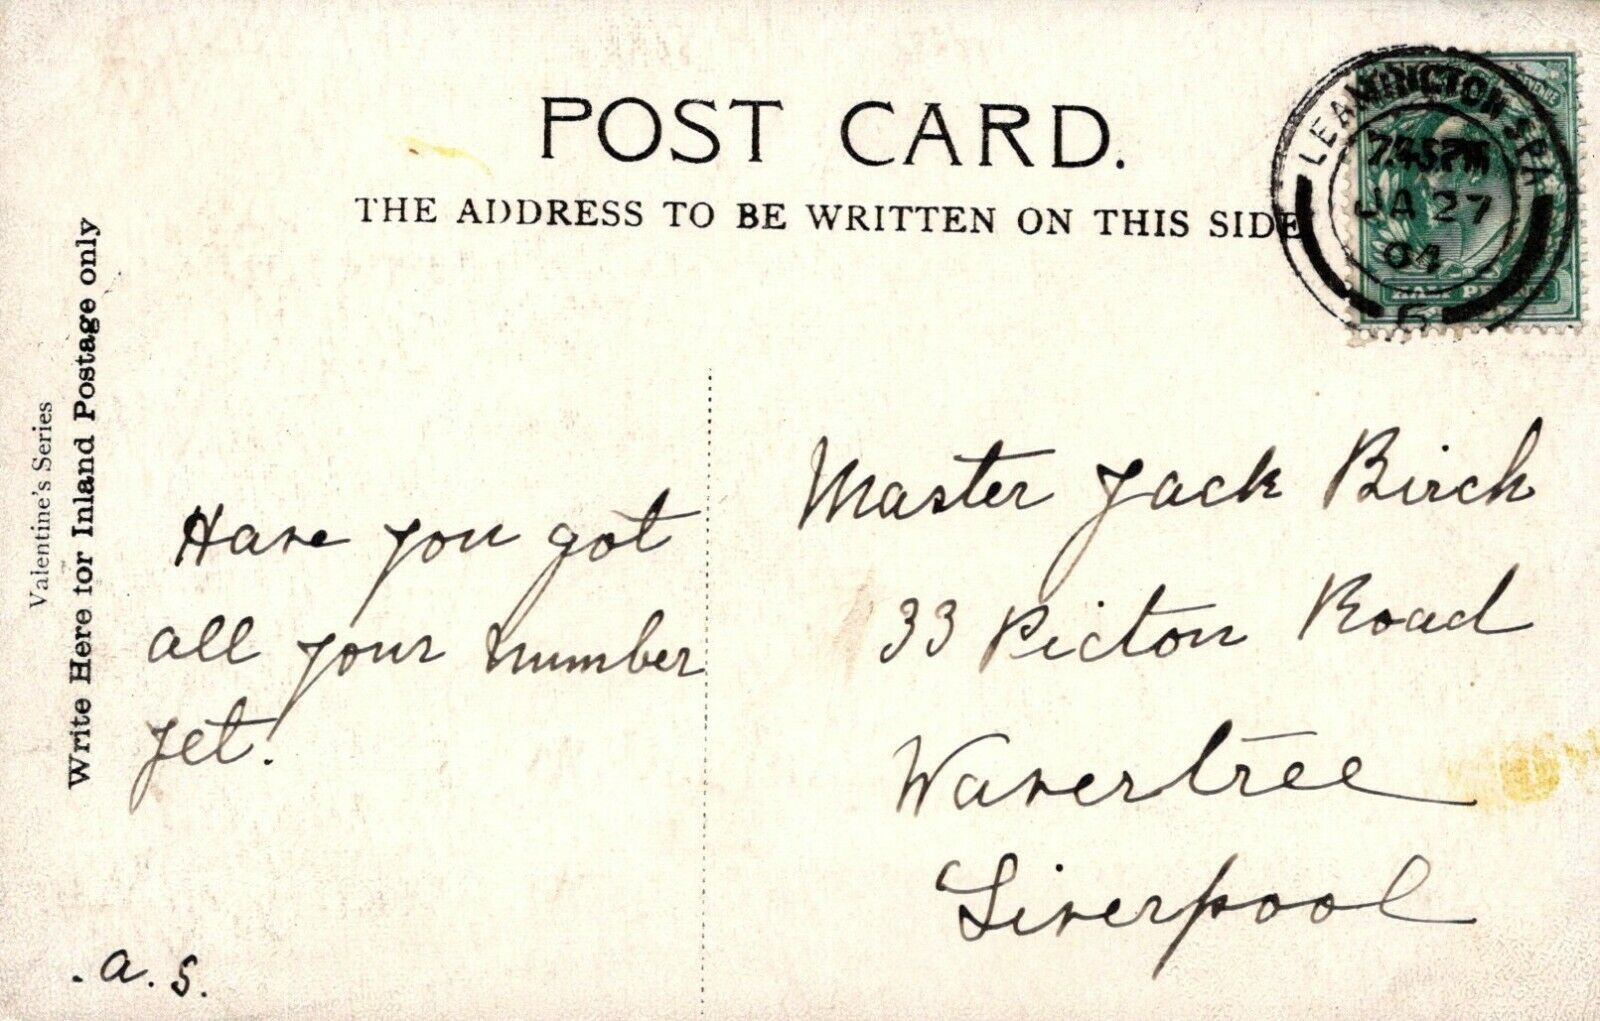 POST CARD.
THE ADDRESS TO BE WRITTEN ON THIS SIDE
Valentine's Series
Write Here for Inland Postage only
LEAMINGTON SPA
7.45PM
JA 27
04
5
HALF PENNY
Have you got
all your number
yet.
.a.s.
Master Jack Birch
33 Picton Road
Wavertree
Liverpool